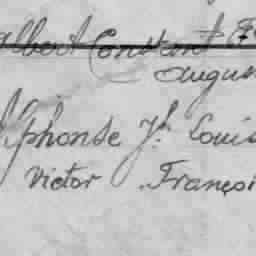 albert Constant
august
Alphonse Jh. Louis
Victor Françoi